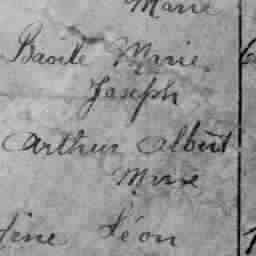 Marie
Basile Marie
Joseph
Arthur Albert
Marie
Léon